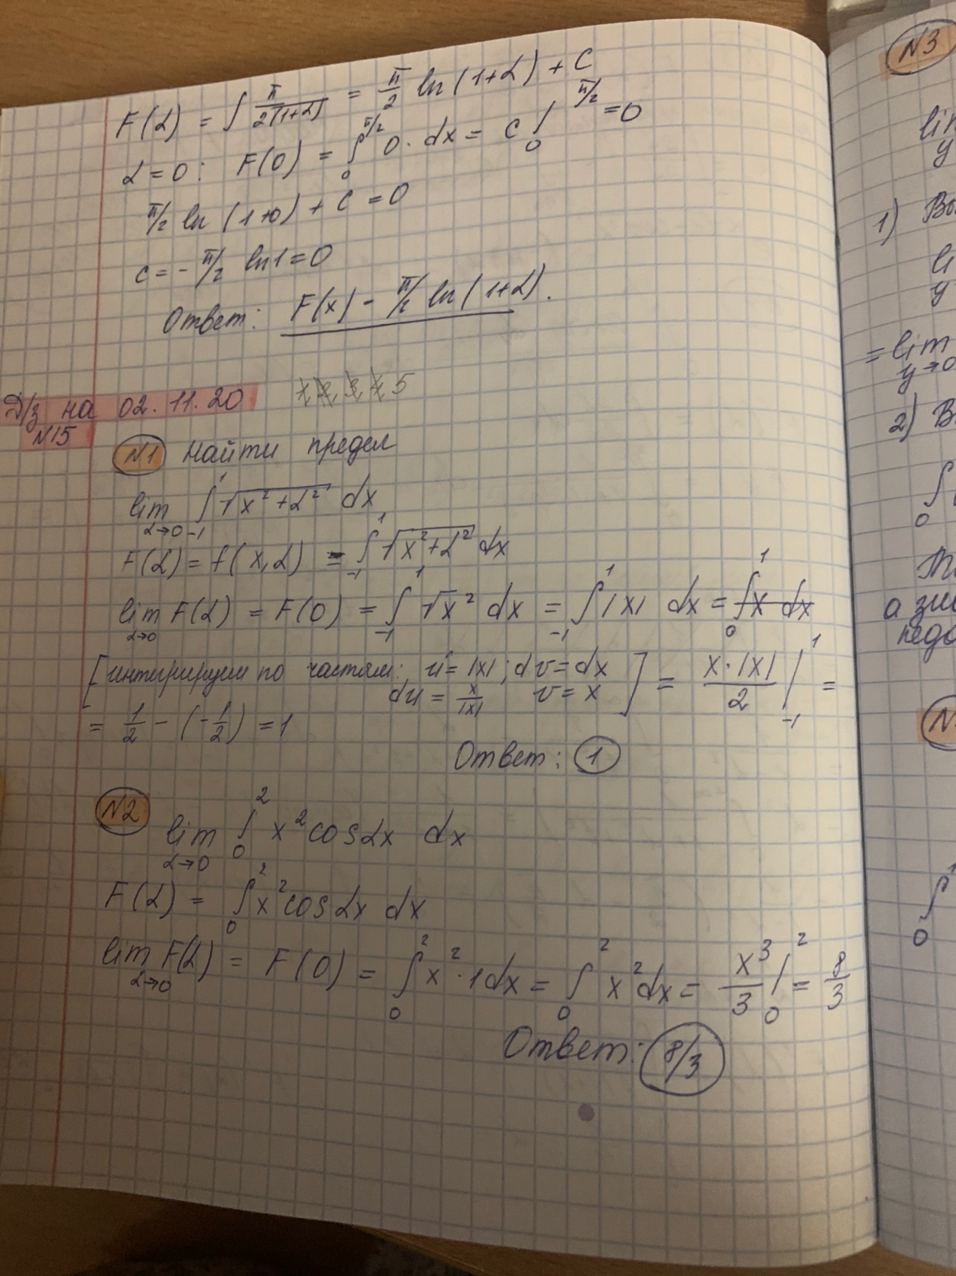 F(α) = ∫ π/2(1+α) = π/2 ln(1+α) + C
α=0: F(0) = ∫₀^π/2 0·dx = C |₀^π/2 = 0
π/2 ln(1+0) + C = 0
C = - π/2 ln1 = 0
Ответ: F(x) - π/2 ln(1+α).
Д/з на 02.11.20
5
N15
N1 Найти предел
lim α→0 ∫₋₁¹ √x²+α² dx
F(α) = f(x,α) = ∫₋₁¹ √x²+α² dx
lim α→0 F(α) = F(0) = ∫₋₁¹ √x² dx = ∫₋₁¹ |x| dx = ∫₀¹ x dx
[интирируем по частям: u=|x|; dv=dx
du = x/|x| v=x ] = x·|x|/2 |₋₁¹ =
= 1/2 - (-1/2) = 1
Ответ: 1
N2 lim α→0 ∫₀² x² cos αx dx
F(α) = ∫₀² x² cos αx dx
lim α→0 F(α) = F(0) = ∫₀² x²·1dx = ∫₀² x²dx = x³/3 |₀² = 8/3
Ответ: 8/3
N3
lim
y
1)
li
y
= lim
y→0
2) В
∫
0
а
N
∫
0